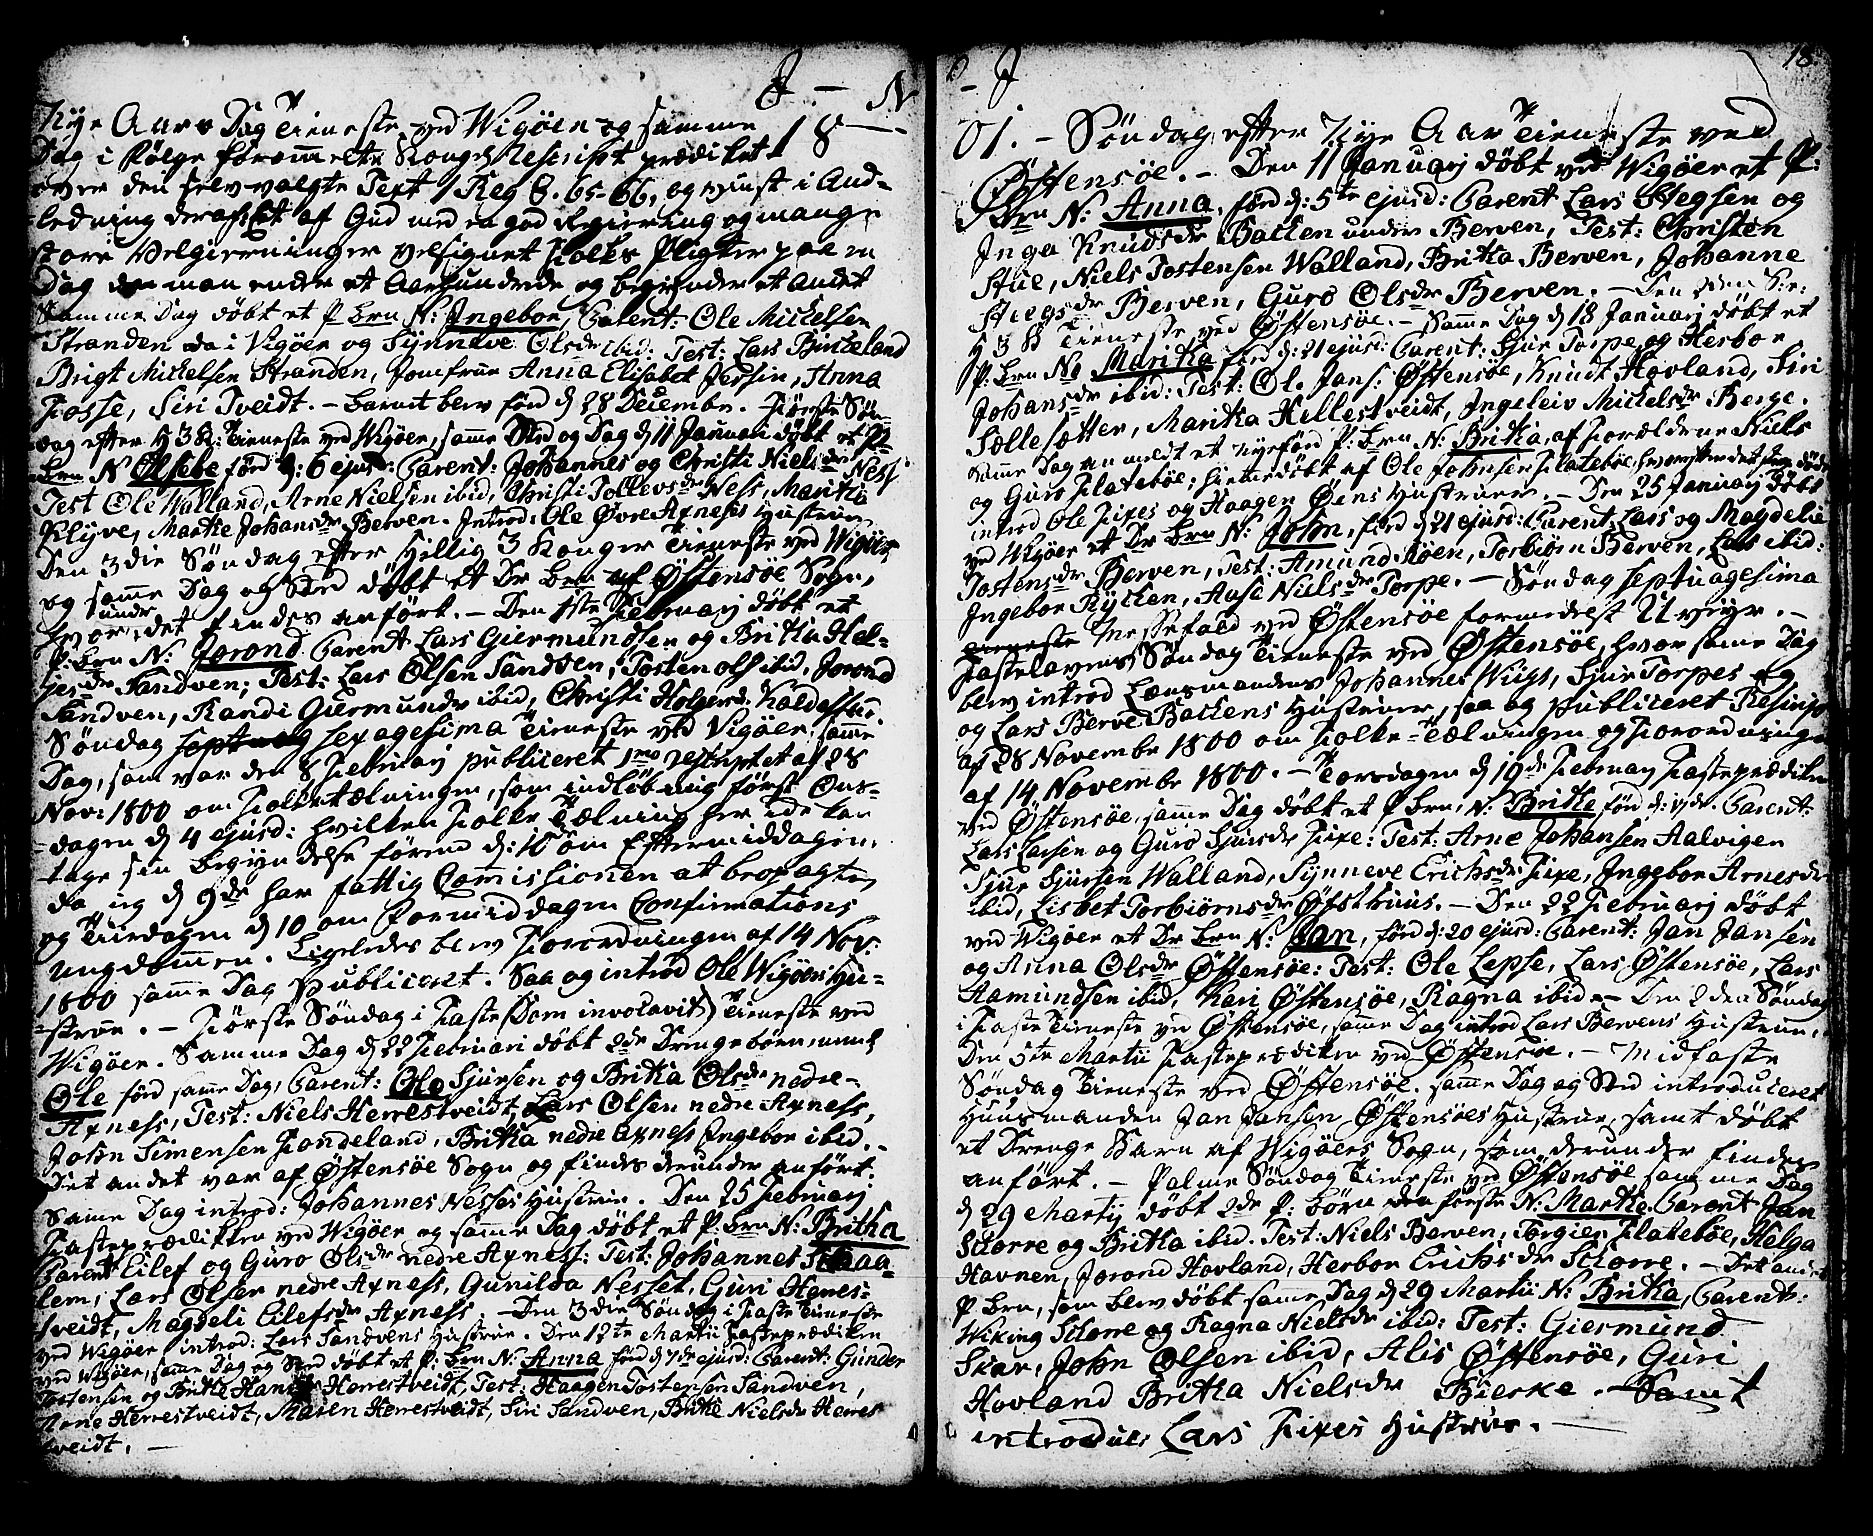 J. - N
Nye Aars Dag Tieneste ved Wigöen og samme 18
Dag i Følge forommelte Kongl Rescript prædiket
over den selv valgte Text 1 Reg 8. 65-66, og viist i And-
ledning deraf: Et af Gud med en god Regiering og mange
store Velgierninger velsignet Folks Pligter paa en
Dag da man ender et Aarhundrede og begynder et andet
Samme Dag døbt et P. brn N: Ingebor, Parent: Ole Mickelsen
Stranden i Vigöer og Synneve Olsdr ibid: Test: Lars Birkeland
Brigt Mickelsen Stranden, Jomfrue Anna Elisabet Jersin, Anna
Fosse, Siri Tveidt. - barnet blev föd d 28 Decembr. Förste Sön-
dag efter H 3 K: Tieneste ved Wigöer, samme Sted og Dag d 11 Januari döbt et P.
brn N Olsebe född d: 6 ejusd: Parent: Johannes og Christi Nielsdr Ness
Test Ole Walland, Arne Nielsen ibid, Christi Tollevsdr Ness, Maritta
Klyve, Marthe Johansdr Berven. Introd: Ole Øvre Axness Hustrue
Den 3die Söndag efter Hellig 3 Konger Tieneste ved Wigöer
og samme Dag og Sted döbt et Dr brn af Østensöe Sogn,
hvorunder det findes anfört. - Den 1ste Februarj döbt et
P: brn N: Jorond Parent Lars Giermundsen og Britha Hel-
jesdr Sandven; Test: Lars Olsen Sandven, Tosten ols ibid, Jorond
Sandven, Randi Giermundsdr ibid, Christi Holgersd: Kaldestad.
Söndag Sexagesima Tieneste ved Vigöer, samme
Dag, som var den 8 Februarj publiceret 1mo Rescriptet af 28
Nov: 1800 om Folketælningen, som indlöb mig först Ons-
dagen d 4 ejusd: hvilken Folke Tælning her ide kan
tage sin begyndelse förend d: 10 om Eftermiddagen,
da jeg d 9de har fattig Commissionen at
og Tiirsdagen d 10 om Formiddagen Confirmations
ungdommen. Ligeledes blev Forordningen af 14 Nov:
1800 samme Dag Publiceret. Saa og introd Ole Wigöers Hu-
strue. - Förste Söndag i Faste (Dom involavit) Tieneste ved
Wigöer. Samme Dag d 22 Februari döbt 2de Drengebörn, nemlig
Ole föd samme Dag, Parent: Ole Sjursen og Britha Olsdr nedre-
Axness, Test: Niels Herrestveidt, Lars Olsen nedre Axness,
John Simensen Fandeland, Britha nedre Axness Ingebor ibid. -
Det andet var af Østensöe Sogn og findes derunder anfört.
Samme Dag introd: Johannes Nesses Hustrue. Den 25 Februarj
Fasteprædikken ved Wigöer og samme Dag döbt et P. brn N: Britha
Parent Eilef og Guro Olsdr nedre Axness: Test: Johannes Skaaa-
lem, Lars Olsen nedre Axness, Gunilda Nesset, Guri Hagnes-
tveidt, Magdeli Eilefsdr Axness. - Den 3die Söndag i Faste Tieneste
ved Wigöer introd: Lars Sandvens Hustrue. Den 12te Martii Fasteprædiken
ved Wigöer, samme Dag og Sted döbt et P: brn N: Anna föd d 7de ejusd: Parent: Gunder
Tostensen og Britha Herrestveidt, Test: Haagen Tostensen Sandven,
Herrestveidt, Maren Herrestveidt, Siri Sandven, Brithe Nielsdr Herres
tveidt. -
- J
18
01. - Söndag efter Nye Aar Tieneste ved
Østensöe. - Den 11 Januarj döbt ved Wigöer et P:
brn N: Anna, föd d: 5te ejusd: Parent Lars Stegsen og
Inga Knudsdr Backen under Berven, Test: Christen
Stue, Niels Tostensen Walland, Britha Berven, Johanne
Stiegsdr Berven, Guro Olsdr Berven. - Den 2den S: e:
H 3 K Tieneste ved Østensöe. - Samme Dag d 18 Januarj döbt et
P: brn N: Maritha föd d: ejusd: Parent: Sjur Torpe og Herbor
Johansdr ibid: Test: Ole Jans: Østensöe, Knudt Hovland, Siri
Sollesætter, Maritha Hillestveidt, Ingeleiv Mickelsdr Berge.
Samme Dag anmeldt et nyeföd P: brn N: Britha, af Forældrene Niels
og Guro Flateböe; hiemmedöbt af Ole Johnsen Flateböe, hvorefter det döde
introd Ole Fixes og Haagen Øens Hustruer. - Den 25 Januarj döbt
ved Wigöer et Dr brn N: John, föd d 21 ejusd: Parent: Lars og Magdelie
Tostensdr Berven, Test: Amund Röen, Torbiörn Berven, Lars ibid:
Ingebor Rykken, Aase Nielsdr Torpe. - Söndag Septuagesima
Tieneste Messefald ved Østensöe formedelst Uveyr. -
Fastelavens Söndag Tieneste ved Østensöe, hvor samme Dag
blev introd Lænsmanden Johannes Wiigs, Sjur Torpes og
og Lars Berve Backens Hustruer, saa og publiceret Rescript
af 28 Novembr 1800 om Folke Tælningen og Forordningen
af 14 Novembr 1800. - Torsdagen d 19de Februarj Fasteprædiken
ved Østensöe, samme Dag döbt et P brn, N: Brithe föd d: Parent:
Lars Larsen og Guro Sjursdr Fixe: Test: Arne Johansen Aalvigen
Sjur Sjursen Walland, Synneve Erichsdr Fixe, Ingebor Arnesdr
ibid, Lisbet Torbiörnsdr Øfsthuus. - Den 22 Februarj döbt
ved Wigöer et Dr brn N: Jan, föd d: 20 ejusd: Parent: Jan Jansen
og Anna Olsdr Østensöe: Test: Ole Lepse, Lars Østensöe, Lars
Aamundsen ibid, Kari Østensöe, Ragna ibid. - Den 2den Söndag
i Faste Tieneste ved Østensöe, samme Dag introd Lars Bervens Hustrue,
Den 5te Martii Fasteprædiken ved Østensöe. - Midfaste
Söndag Tieneste ved Østensöe. samme Dag og Sted introduceret
Huusmanden Jan Jansen Østensöes Hustrue, samt döbt
et Drenge Barn af Wigöers Sogn, som derunder findes
anfört. - Palme Söndag Tieneste ved Østensöe samme Dag
d 29 Martij döbt 2de P: börn den förste N: Marthe. Parent Jan
Skorre og Britha ibid. Test: Niels Berven, Torgier Flateböe, Helga
Havnen, Jorond Hovland, Herbor Erichsdr Skorre. - Det andet
P brn, som blev döbt samme Dag d 29 Martii N: Britha, Parent:
Wiking Skorre og Ragna Nielsdr ibid: Test: Giermund
Skar, John Olsen ibid, Alis Østensöe, Guri
Hovland Britha Nielsdr Bierke. - Samt
introduc Lars Fixes Hustrue. -